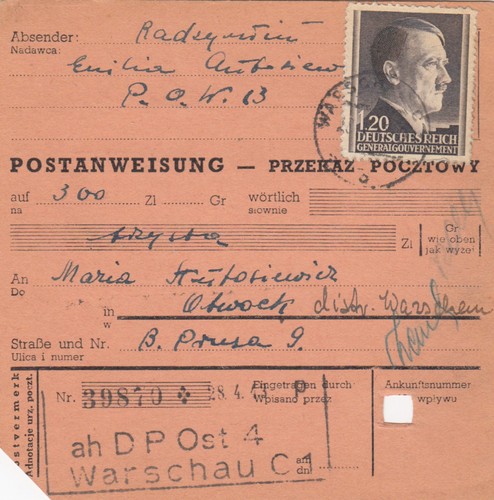 Absender:
Nadawca:
Radzymin
Emilia Antosiew
P. O. W. 13
WARS
1.20
DEUTSCHES REICH
GENERALGOUVERNEMENT
POSTANWEISUNG — PRZEKAZ POCZTOWY
auf 300 Zl Gr wörtlich
na słownie
trzysta Zl Gr
wie oben
jak wyżej
An Maria Antosiewicz
Do
in Otwock distr. Warschau
w
Straße und Nr. B. Prusa 9.
Ulica i numer
Postvermerk
Adnotacje urz. poczt.
Nr. 39870 28. 4. 43 P
Eingetragen durch
Wpisano przez
Ankunftsnummer
wpływu
ah D P Ost 4
Warschau C 1
am
dn.